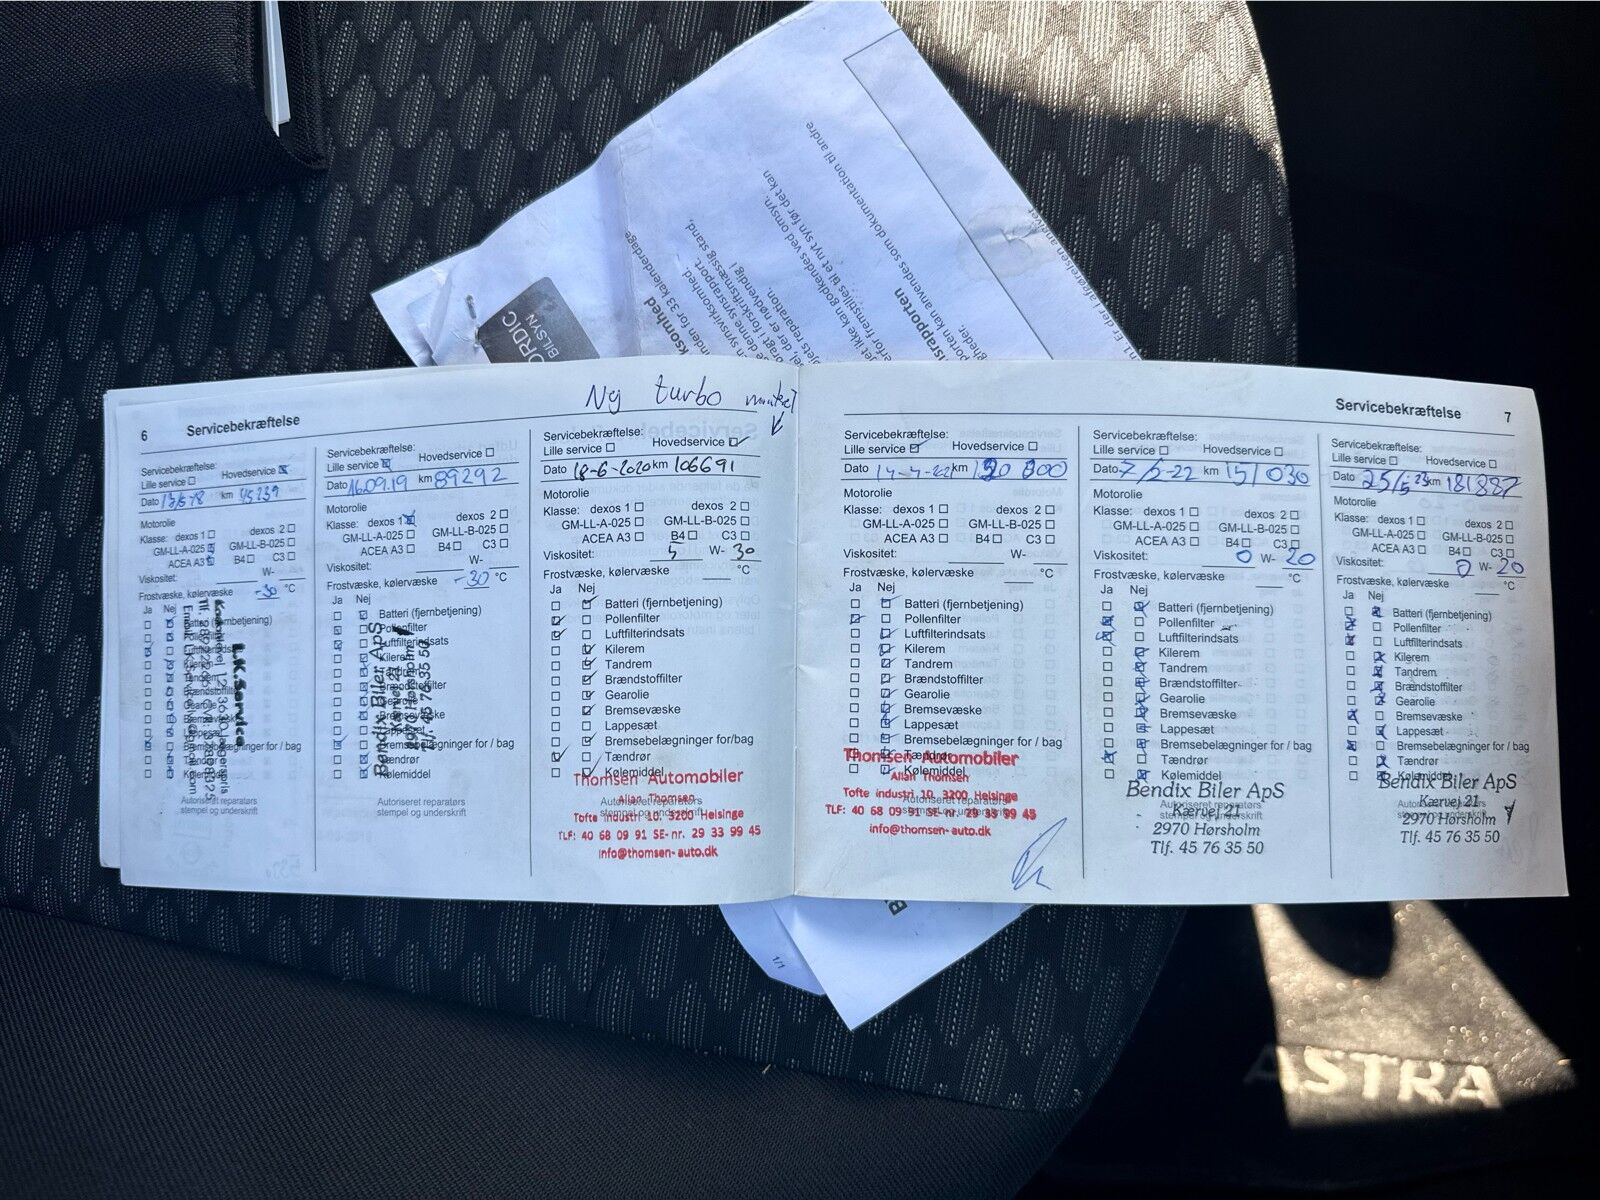 NORDIC
BILSYN
ksomhed
anden for 33 kalenderdage
ved omsyn.
før det kan
srapporten
som dokumentation til andre
1/1
Nej turbo
6 Servicebekræftelse
Servicebekræftelse:
Lille service Hovedservice
Dato km 45239
Motorolie
Klasse: dexos 1 dexos 2
GM-LL-A-025 GM-LL-B-025
ACEA A3 B4 C3
Viskositet: W-
Frostvæske, kølervæske -30 °C
Ja Nej
Batteri (fjernbetjening)
Pollenfilter
Luftfilterindsats
Kilerem
Tandrem
Brændstoffilter
Gearolie
Bremsevæske
Lappesæt
Bremsebelægninger for / bag
Tændrør
Kølemiddel
L.K. Service
Autoriseret reparatørs
stempel og underskrift
Servicebekræftelse:
Lille service Hovedservice
Dato 16.09.19 km 89292
Motorolie
Klasse: dexos 1 dexos 2
GM-LL-A-025 GM-LL-B-025
ACEA A3 B4 C3
Viskositet: W-
Frostvæske, kølervæske -30 °C
Ja Nej
Batteri (fjernbetjening)
Pollenfilter
Luftfilterindsats
Kilerem
Tandrem
Brændstoffilter
Gearolie
Bremsevæske
Lappesæt
Bremsebelægninger for / bag
Tændrør
Kølemiddel
Bendix Biler ApS
Kærvej 21
2970 Hørsholm
Tlf. 45 76 35 50
Autoriseret reparatørs
stempel og underskrift
Servicebekræftelse:
Lille service Hovedservice
Dato 18-6-2020 km 106691
Motorolie
Klasse: dexos 1 dexos 2
GM-LL-A-025 GM-LL-B-025
ACEA A3 B4 C3
Viskositet: 5 W- 30
Frostvæske, kølervæske °C
Ja Nej
Batteri (fjernbetjening)
Pollenfilter
Luftfilterindsats
Kilerem
Tandrem
Brændstoffilter
Gearolie
Bremsevæske
Lappesæt
Bremsebelægninger for/bag
Tændrør
Kølemiddel
Thomsen Automobiler
Allan Thomsen
Autoriseret reparatørs
Tofte industri 10, 3200 Helsinge
stempel og underskrift
TLF: 40 68 09 91 SE-nr. 29 33 99 45
info@thomsen-auto.dk
Servicebekræftelse 7
Servicebekræftelse:
Lille service Hovedservice
Dato km
Motorolie
Klasse: dexos 1 dexos 2
GM-LL-A-025 GM-LL-B-025
ACEA A3 B4 C3
Viskositet: W-
Frostvæske, kølervæske °C
Ja Nej
Batteri (fjernbetjening)
Pollenfilter
Luftfilterindsats
Kilerem
Tandrem
Brændstoffilter
Gearolie
Bremsevæske
Lappesæt
Bremsebelægninger for / bag
Tændrør
Thomsen Automobiler
Kølemiddel
Allan Thomsen
Tofte industri 10, 3200 Helsinge
Autoriseret reparatørs
stempel og underskrift
TLF: 40 68 09 91 SE-nr. 29 33 99 45
info@thomsen-auto.dk
Servicebekræftelse:
Lille service Hovedservice
Dato 7/2-22 km 151030
Motorolie
Klasse: dexos 1 dexos 2
GM-LL-A-025 GM-LL-B-025
ACEA A3 B4 C3
Viskositet: 0 W- 20
Frostvæske, kølervæske °C
Ja Nej
Batteri (fjernbetjening)
Pollenfilter
Luftfilterindsats
Kilerem
Tandrem
Brændstoffilter
Gearolie
Bremsevæske
Lappesæt
Bremsebelægninger for / bag
Tændrør
Kølemiddel
Bendix Biler ApS
Autoriseret reparatørs
Kærvej 21
stempel og underskrift
2970 Hørsholm
Tlf. 45 76 35 50
Servicebekræftelse:
Lille service Hovedservice
Dato 25/5 23 km 181887
Motorolie
Klasse: dexos 1 dexos 2
GM-LL-A-025 GM-LL-B-025
ACEA A3 B4 C3
Viskositet: 0 W- 20
Frostvæske, kølervæske °C
Ja Nej
Batteri (fjernbetjening)
Pollenfilter
Luftfilterindsats
Kilerem
Tandrem
Brændstoffilter
Gearolie
Bremsevæske
Lappesæt
Bremsebelægninger for / bag
Tændrør
Kølemiddel
Bendix Biler ApS
Autoriseret reparatørs
Kærvej 21
stempel og underskrift
2970 Hørsholm
Tlf. 45 76 35 50
ASTRA